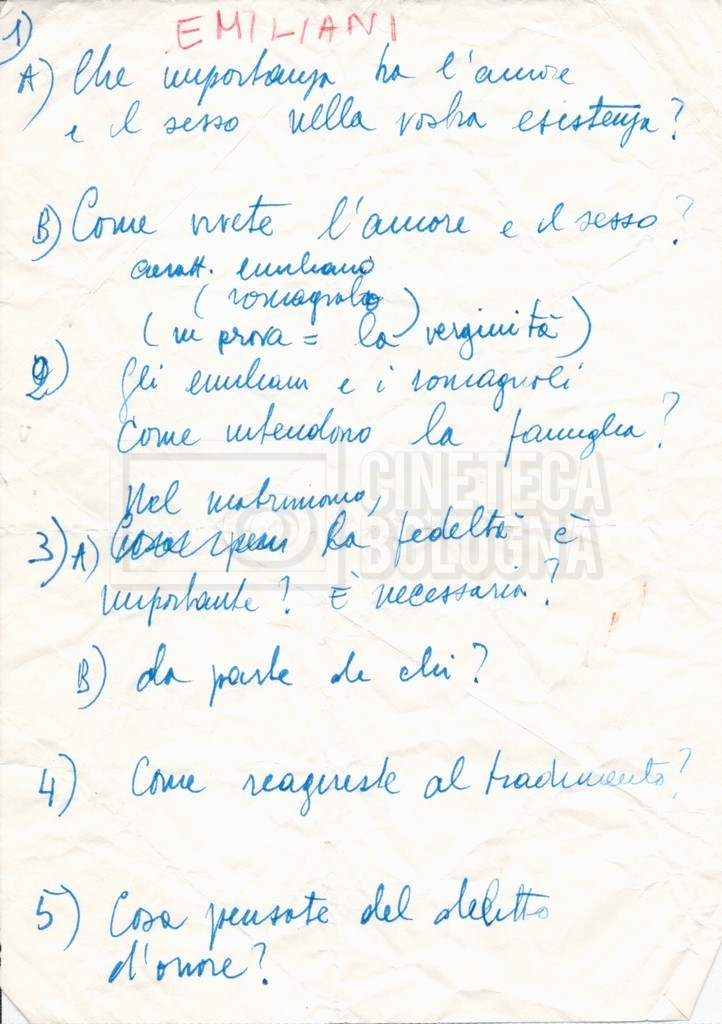 EMILIANI
1)
A) Che importanza ha l'amore
e il sesso nella vostra esistenza?
B) Come vivete l'amore e il sesso?
caratt. emiliano
(romagnolo)
(in prova = la verginità)
2) Gli emiliani e i romagnoli
Come intendono la famiglia?
Nel matrimonio,
3) A) la fedeltà è
importante? È necessaria?
B) da parte di chi?
4) Come reagireste al tradimento?
5) Cosa pensate del delitto
d'onore?
CINETECA
BOLOGNA